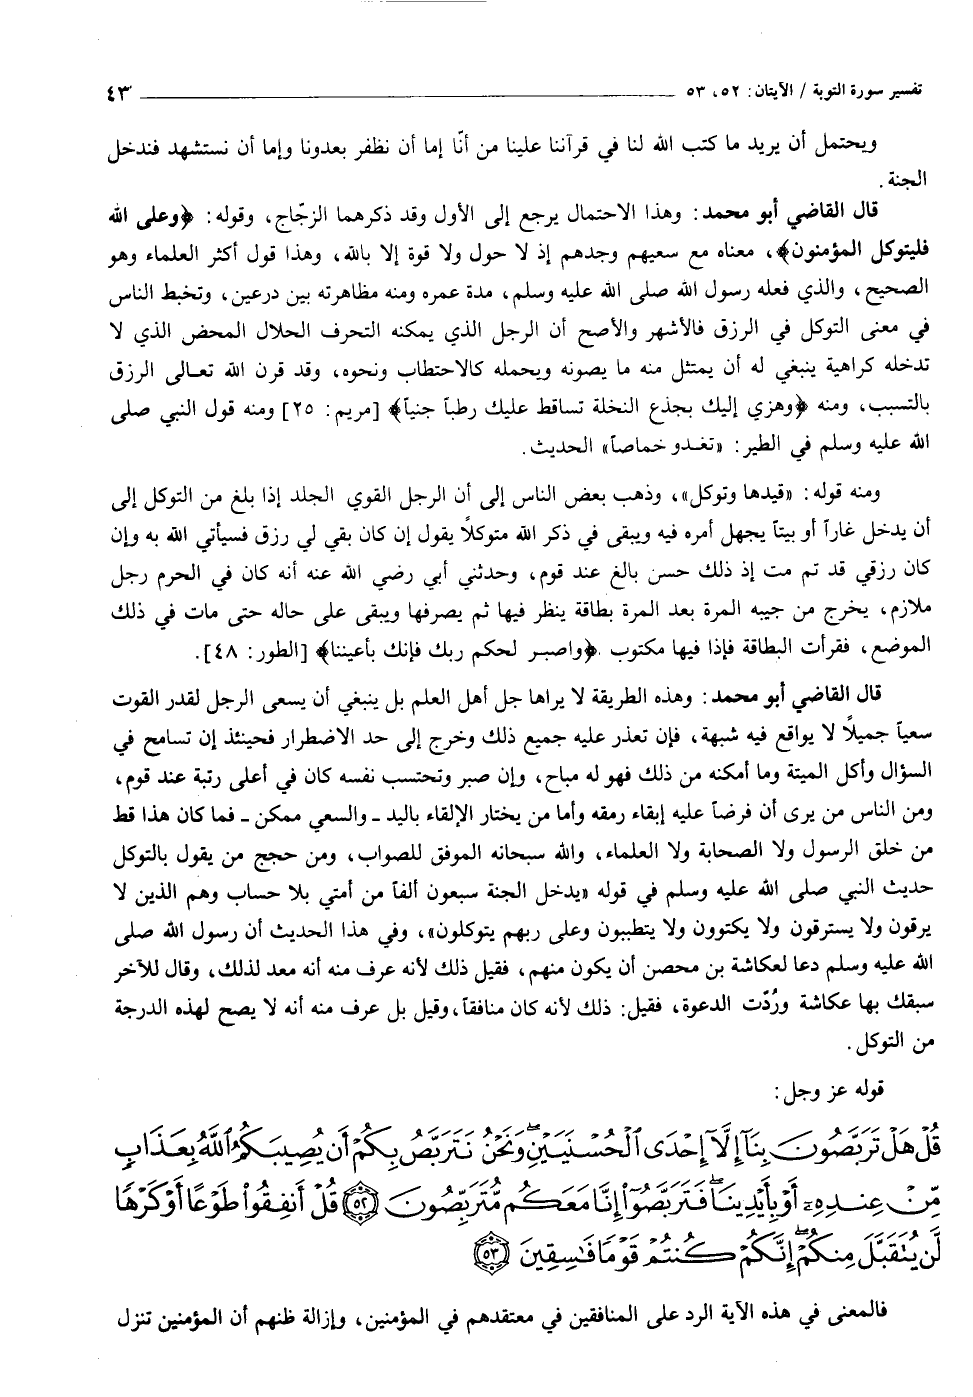 تفسير سورة التوبة / الآيتان : ٥٢، ٥٣ ــــــــ ٤٣
ويحتمل أن يريد ما كتب الله لنا في قرآننا علينا من أنّا إما أن نظفر بعدونا وإما أن نستشهد فندخل
الجنة .
قال القاضي أبو محمد : وهذا الاحتمال يرجع إلى الأول وقد ذكرهما الزجّاج، وقوله: ﴿وعلى الله
فليتوكل المؤمنون﴾، معناه مع سعيهم وجدهم إذ لا حول ولا قوة إلا بالله، وهذا قول أكثر العلماء وهو
الصحيح، والذي فعله رسول الله صلى الله عليه وسلم، مدة عمره ومنه مظاهرته بين درعين، وتخبط الناس
في معنى التوكل في الرزق فالأشهر والأصح أن الرجل الذي يمكنه التحرف الحلال المحض الذي لا
تدخله كراهية ينبغي له أن يمتثل منه ما يصونه ويحمله كالاحتطاب ونحوه، وقد قرن الله تعالى الرزق
بالتسبب، ومنه ﴿وهزي إليك بجذع النخلة تساقط عليك رطباً جنياً﴾ [مريم: ٢٥] ومنه قول النبي صلى
الله عليه وسلم في الطير: «تغدو خماصاً» الحديث.
ومنه قوله: «قيدها وتوكل»، وذهب بعض الناس إلى أن الرجل القوي الجلد إذا بلغ من التوكل إلى
أن يدخل غاراً أو بيتاً يجهل أمره فيه ويبقى في ذكر الله متوكلاً يقول إن كان بقي لي رزق فسيأتي الله به وإن
كان رزقي قد تم مت إذ ذلك حسن بالغ عند قوم، وحدثني أبي رضي الله عنه أنه كان في الحرم رجل
ملازم، يخرج من جيبه المرة بعد المرة بطاقة ينظر فيها ثم يصرفها ويبقى على حاله حتى مات في ذلك
الموضع، فقرأت البطاقة فإذا فيها مكتوب ﴿واصبر لحكم ربك فإنك بأعيننا﴾ [الطور: ٤٨].
قال القاضي أبو محمد : وهذه الطريقة لا يراها جل أهل العلم بل ينبغي أن يسعى الرجل لقدر القوت
سعياً جميلاً لا يواقع فيه شبهة، فإن تعذر عليه جميع ذلك وخرج إلى حد الاضطرار فحينئذ إن تسامح في
السؤال وأكل الميتة وما أمكنه من ذلك فهو له مباح، وإن صبر وتحتسب نفسه كان في أعلى رتبة عند قوم،
ومن الناس من يرى أن فرضاً عليه إبقاء رمقه وأما من يختار الإلقاء باليد ـ والسعي ممكن ـ فما كان هذا قط
من خلق الرسول ولا الصحابة ولا العلماء، والله سبحانه الموفق للصواب، ومن حجج من يقول بالتوكل
حديث النبي صلى الله عليه وسلم في قوله «يدخل الجنة سبعون ألفاً من أمتي بلا حساب وهم الذين لا
يرقون ولا يسترقون ولا يكتوون ولا يتطببون وعلى ربهم يتوكلون»، وفي هذا الحديث أن رسول الله صلى
الله عليه وسلم دعا لعكاشة بن محصن أن يكون منهم، فقيل ذلك لأنه عرف منه أنه معد لذلك، وقال للآخر
سبقك بها عكاشة ورُدّت الدعوة، فقيل: ذلك لأنه كان منافقاً، وقيل بل عرف منه أنه لا يصح لهذه الدرجة
من التوكل.
قوله عز وجل:
قُلْ هَلْ تَرَبَّصُونَ بِنَآ إِلَّآ إِحْدَى ٱلْحُسْنَيَيْنِ ۖ وَنَحْنُ نَتَرَبَّصُ بِكُمْ أَن يُصِيبَكُمُ ٱللَّهُ بِعَذَابٍ
مِّنْ عِندِهِۦٓ أَوْ بِأَيْدِينَا ۖ فَتَرَبَّصُوٓا۟ إِنَّا مَعَكُم مُّتَرَبِّصُونَ ۝٥٢ قُلْ أَنفِقُوا۟ طَوْعًا أَوْ كَرْهًا
لَّن يُتَقَبَّلَ مِنكُمْ ۖ إِنَّكُمْ كُنتُمْ قَوْمًا فَٰسِقِينَ ۝٥٣
فالمعنى في هذه الآية الرد على المنافقين في معتقدهم في المؤمنين، وإزالة ظنهم أن المؤمنين تنزل